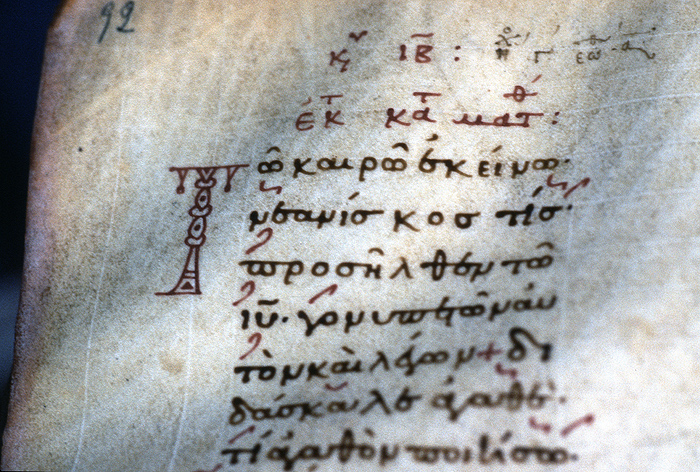 92
κυ ΙΒ̄ :
ἐκ τ κατ ματθ :
Τῶ καιρῶ ἐκείνω·
νεανίσκοσ τίσ·
προσῆλθεν τῶ
ἰῦ· γονυπετῶν αυ
τὸν καὶ λέγων + δι
δάσκαλε ἀγαθὲ·
τί ἀγαθὸν ποιήσω·